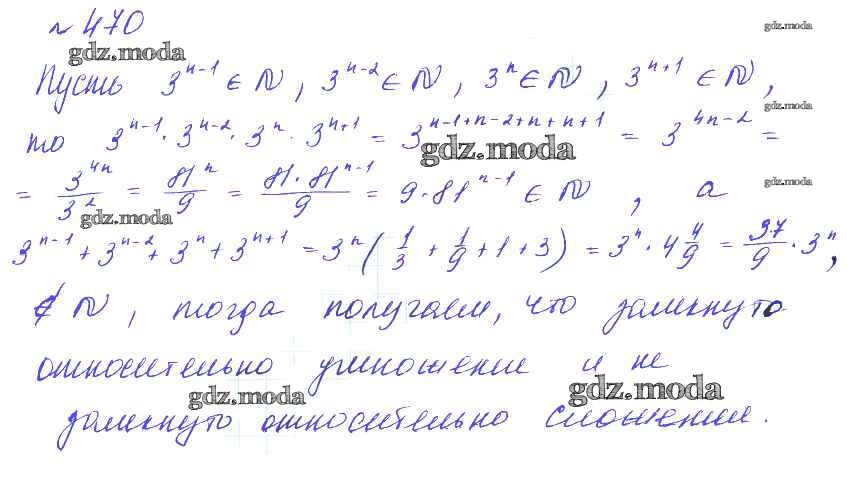 № 470
gdz.moda
gdz.moda
Пусть 3^{n-1} ∈ N, 3^{n-2} ∈ N, 3^n ∈ N, 3^{n+1} ∈ N,
gdz.moda
то 3^{n-1} · 3^{n-2} · 3^n · 3^{n+1} = 3^{n-1+n-2+n+n+1} = 3^{4n-2} =
gdz.moda
= 3^{4n}/3^2 = 81^n/9 = 81·81^{n-1}/9 = 9·81^{n-1} ∈ N, а
gdz.moda
gdz.moda
3^{n-1} + 3^{n-2} + 3^n + 3^{n+1} = 3^n (1/3 + 1/9 + 1 + 3) = 3^n · 4 4/9 = 37/9 · 3^n,
∉ N, тогда получаем, что замкнуто
относительно умножение и не
gdz.moda
gdz.moda
замкнуто относительно сложения.